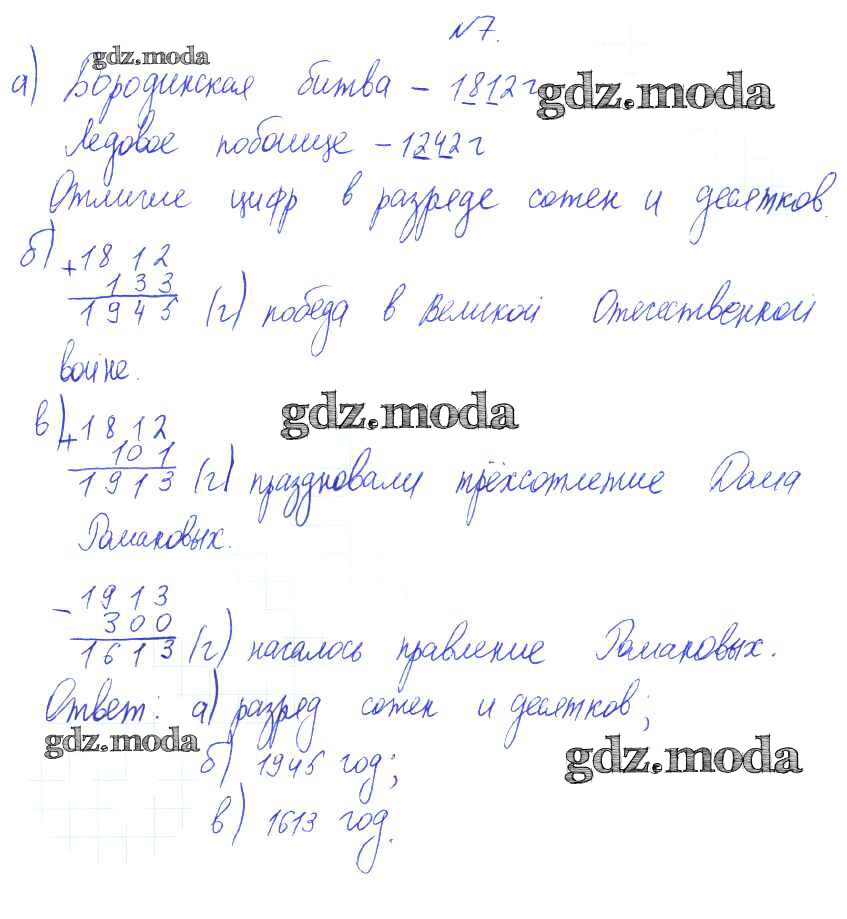 №7.
gdz.moda
а) Бородинская битва – 1812 г
gdz.moda
Ледовое побоище – 1242 г
Отличие цифр в разряде сотен и десятков.
б) +1812
133
1945 (г) победа в Великой Отечественной
войне.
gdz.moda
в) +1812
101
1913 (г) праздновали трёхсотлетие Дома
Романовых.
– 1913
300
1613 (г) началось правление Романовых.
Ответ: а) разряд сотен и десятков;
gdz.moda
б) 1945 год;
gdz.moda
в) 1613 год.